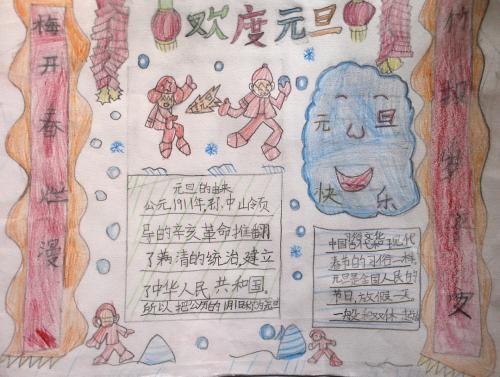 欢度元旦
梅开春烂漫
竹
元旦
快乐
元旦的由来
公元1911年,孙中山领
导的辛亥革命推翻
了满清的统治,建立
了中华人民共和国.
所以把公历的1月1日称为元旦
中国 现代
春节的习俗一样
元旦是全国人民的
节日,放假一天
一般和双休